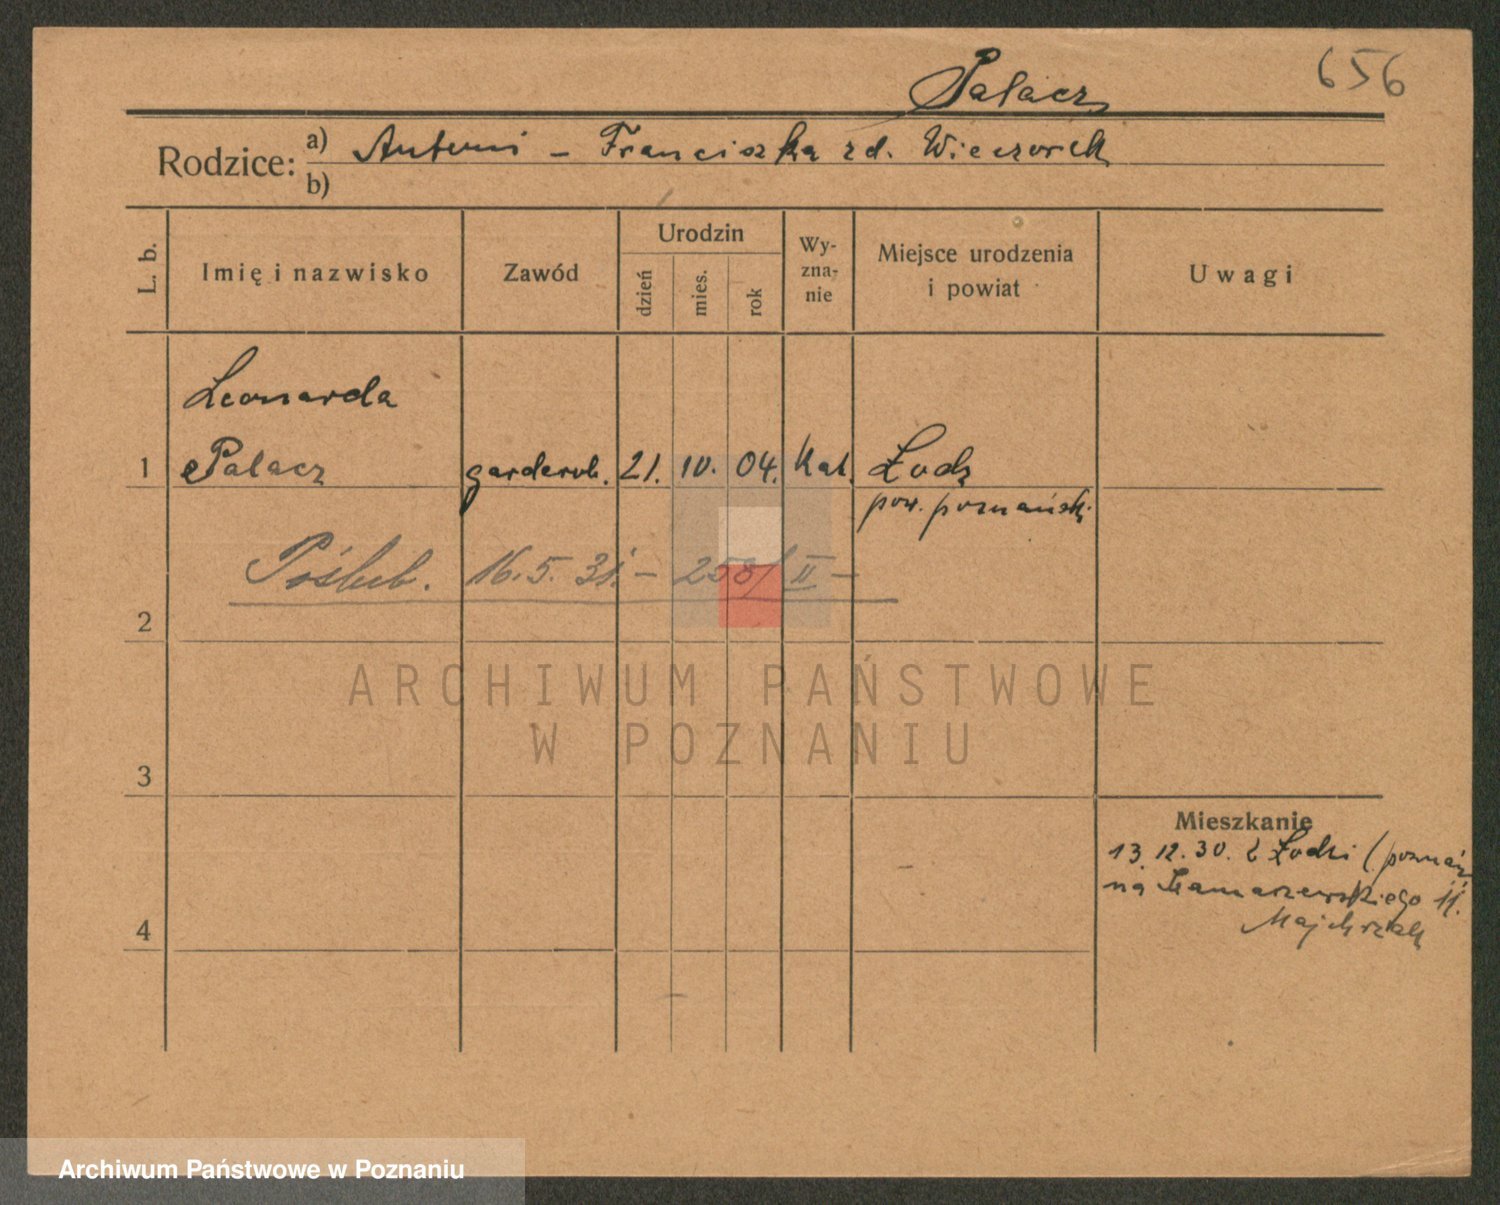 656
Palacz
Rodzice: a) Antoni - Franciszka zd. Wieczorek
b)
L. b. Imię i nazwisko Zawód Urodzin dzień mies. rok Wyzna-nie Miejsce urodzenia i powiat Uwagi
Leonarda
1 Palacz garderob. 21. 10. 04. kat. Łódź
pow. poznański
Poślub. 16.5.31. - 258/II -
2
ARCHIWUM PAŃSTWOWE
W POZNANIU
3
Mieszkanie
13.12.30. z Łodzi (poznań
na 11.
4 Majchrzak
Archiwum Państwowe w Poznaniu